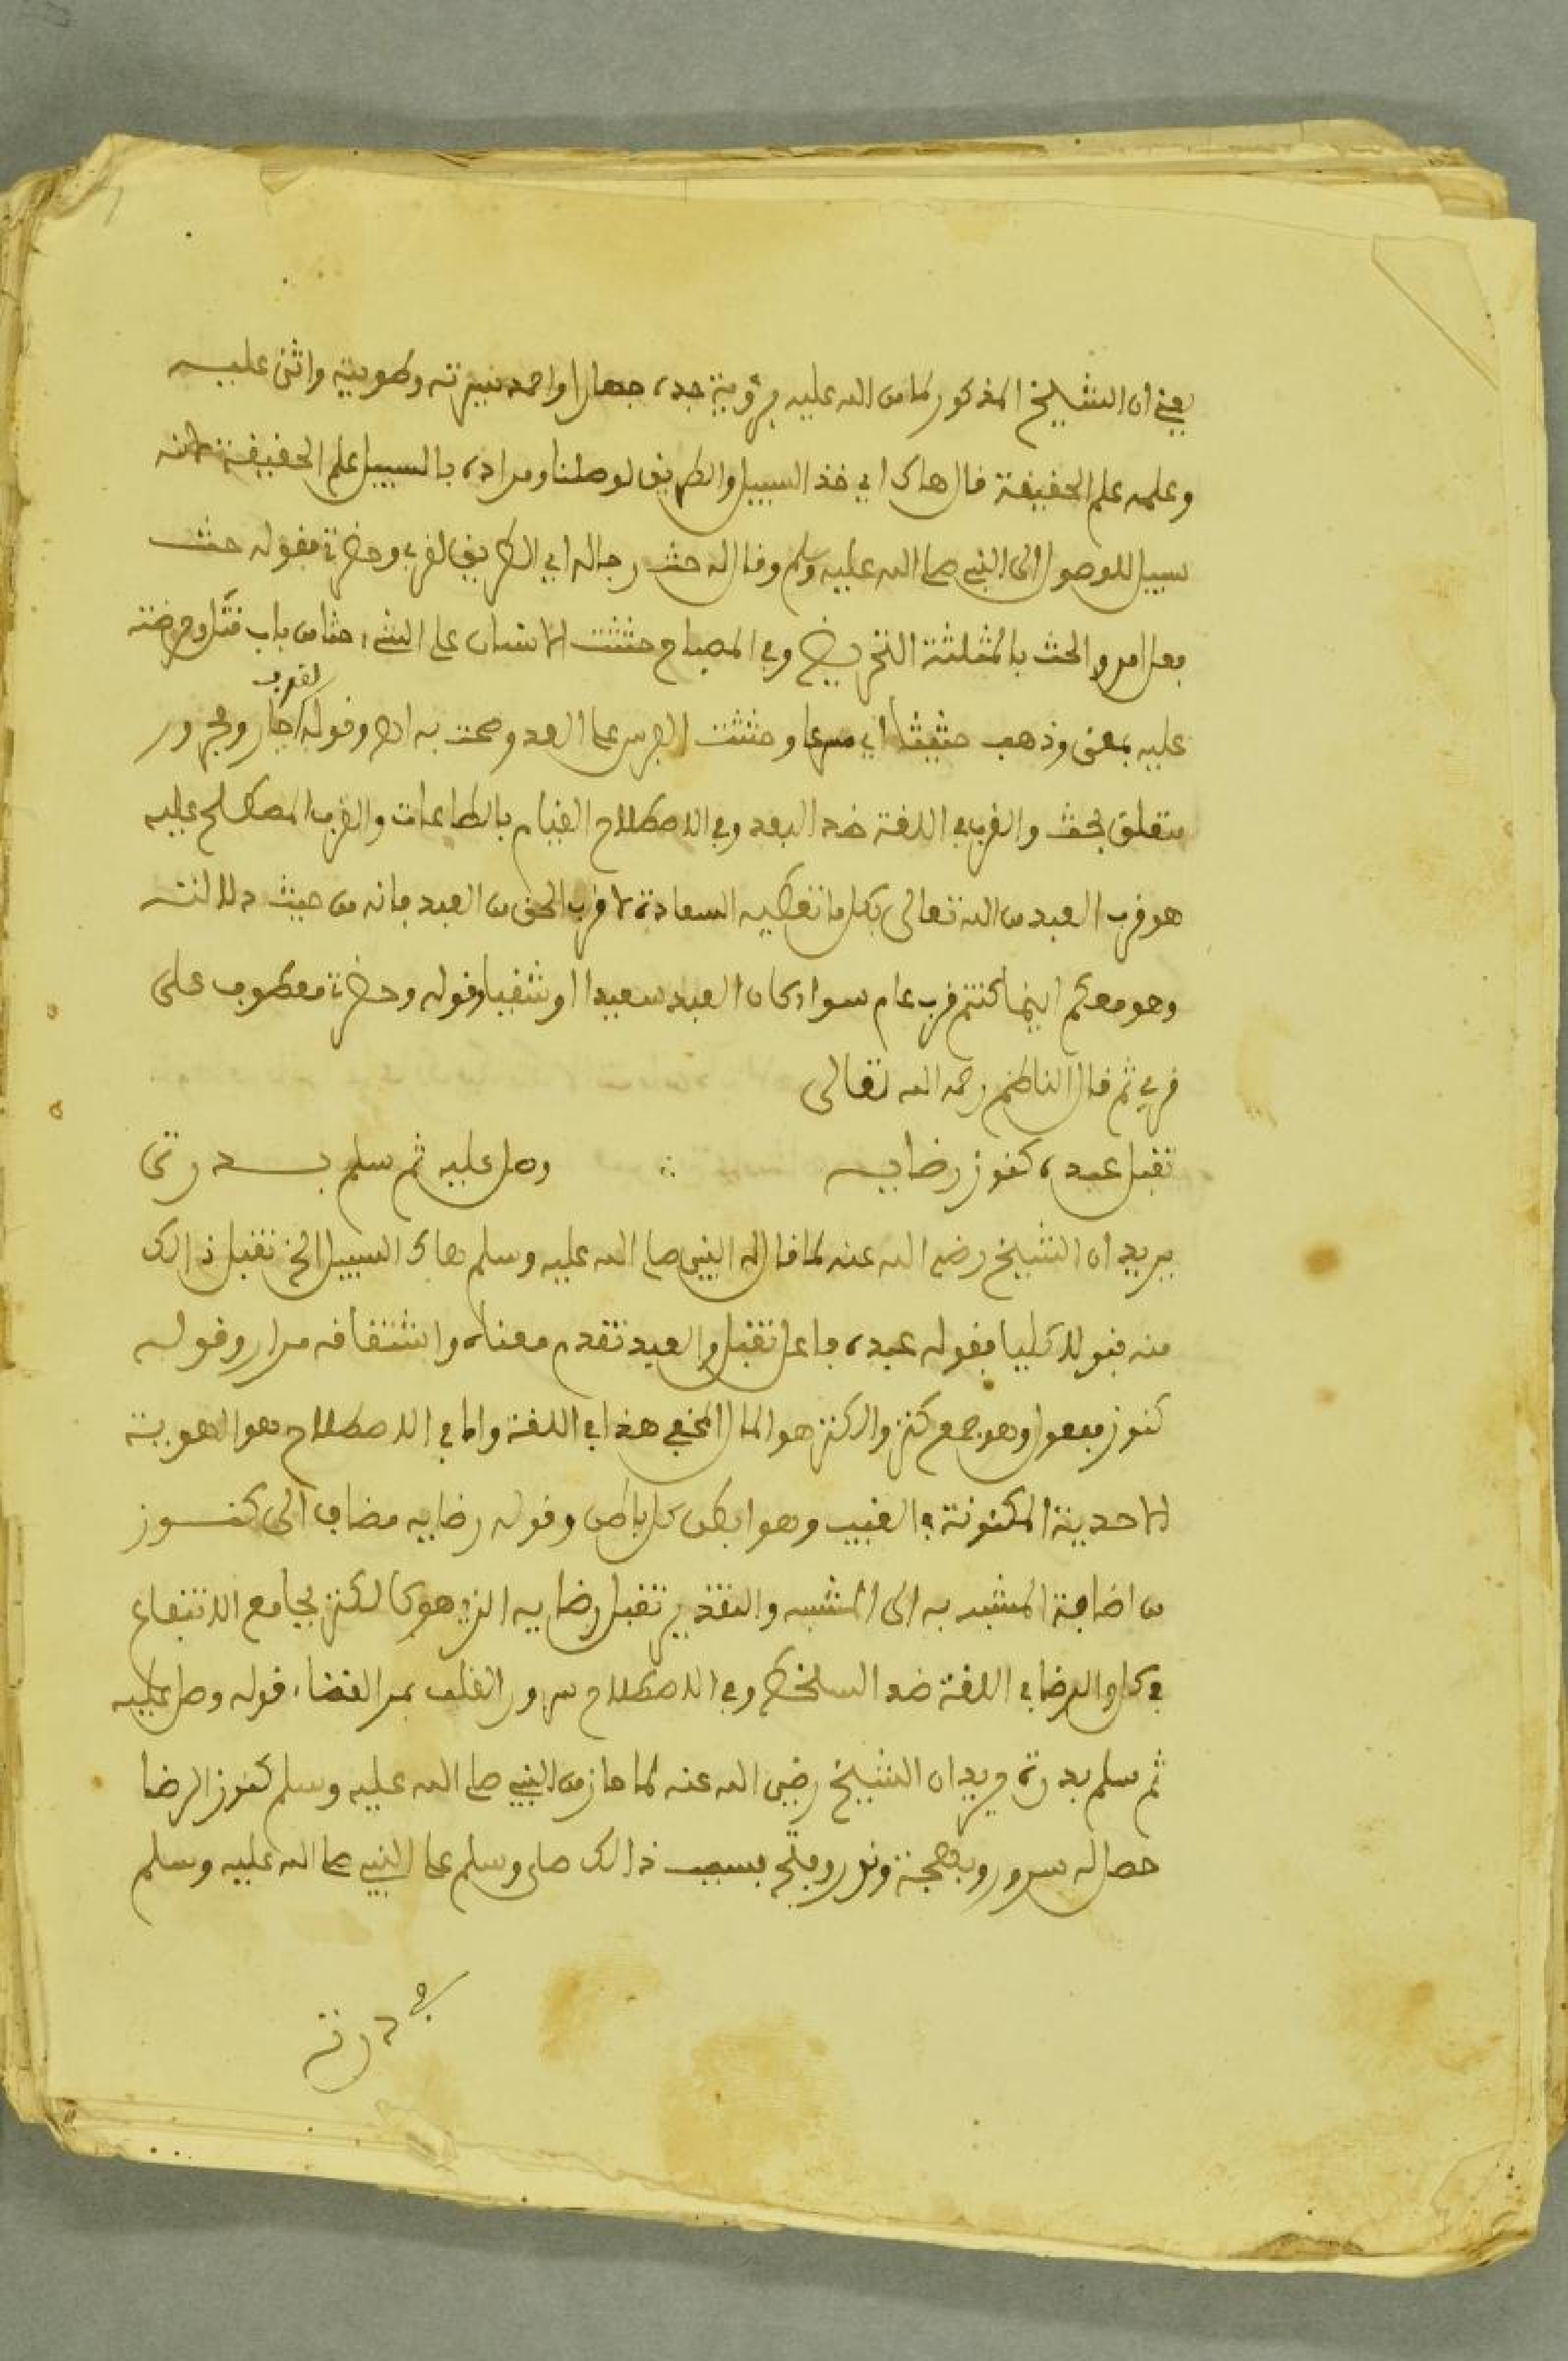 يعني ان الشيخ المذكور لما من الله عليه برؤية جده جهارا واحمد سيرته وطويته واثنى عليه
وعلمه علم الحقيقة قال هاك اي خذ السبيل والطريق لوصلنا ومراده بالسبيل علم الحقيقة لانه
سبيل للوصول الى النبي صلى الله عليه وسلم وقال له حث رجاله اي الطريق لقربي وحضرة فقوله حث
فعل امر والحث بالمثلثة التحريض وفي المصباح حثثت الانسان على الشيء حثا من باب قتل وحرضته
عليه بمعنى وذهب حثيثا اي مسرعا وحثثت الفرس على العدو وصحت به اه وقوله لقربي جار ومجرور
متعلق بحث والقرب في اللغة ضد البعد وفي الاصطلاح القيام بالطاعات والقرب المصطلح عليه
هو قرب العبد من الله تعالى بكل ما تعطيه السعادة لا قرب الحق من العبد فانه من حيث دلالته
وهو معكم اينما كنتم قرب عام سواء كان العبد سعيدا او شقيا وقوله وحضرة معطوف على
قربي ثم قال الناظم رحمه الله تعالى
تقبل عبده كنوز رضايه ∴ وصل عليه ثم سلم بدرتي
يريد ان الشيخ رضي الله عنه لما قال له النبي صلى الله عليه وسلم هاك السبيل الخ تقبل ذالك
منه قبولا كليا فقوله عبده فاعل تقبل والعبد تقدم معناه واشتقاقه مرارا وقوله
كنوز مفعول وهو جمع كنز والكنز هو المال المخفي هذا في اللغة واما في الاصطلاح هو الهوية
الاحدية المكنونة في الغيب وهو ابطن كل باطن وقوله رضايه مضاف الى كنوز
من اضافة المشبه به الى المشبه والتقدير تقبل رضايه الذي هو كالكنز بجامع الانتفاع
في كل والرضا في اللغة ضد السخط وفي الاصطلاح سرور القلب بمر القضاء قوله وصل عليه
ثم سلم بدرة يريد ان الشيخ رضي الله عنه لما حاز من النبي صلى الله عليه وسلم كنوز الرضا
حصل له سرور وبهجة ونور وبسبب ذالك صلى وسلم على النبي صلى الله عليه وسلم
في درته